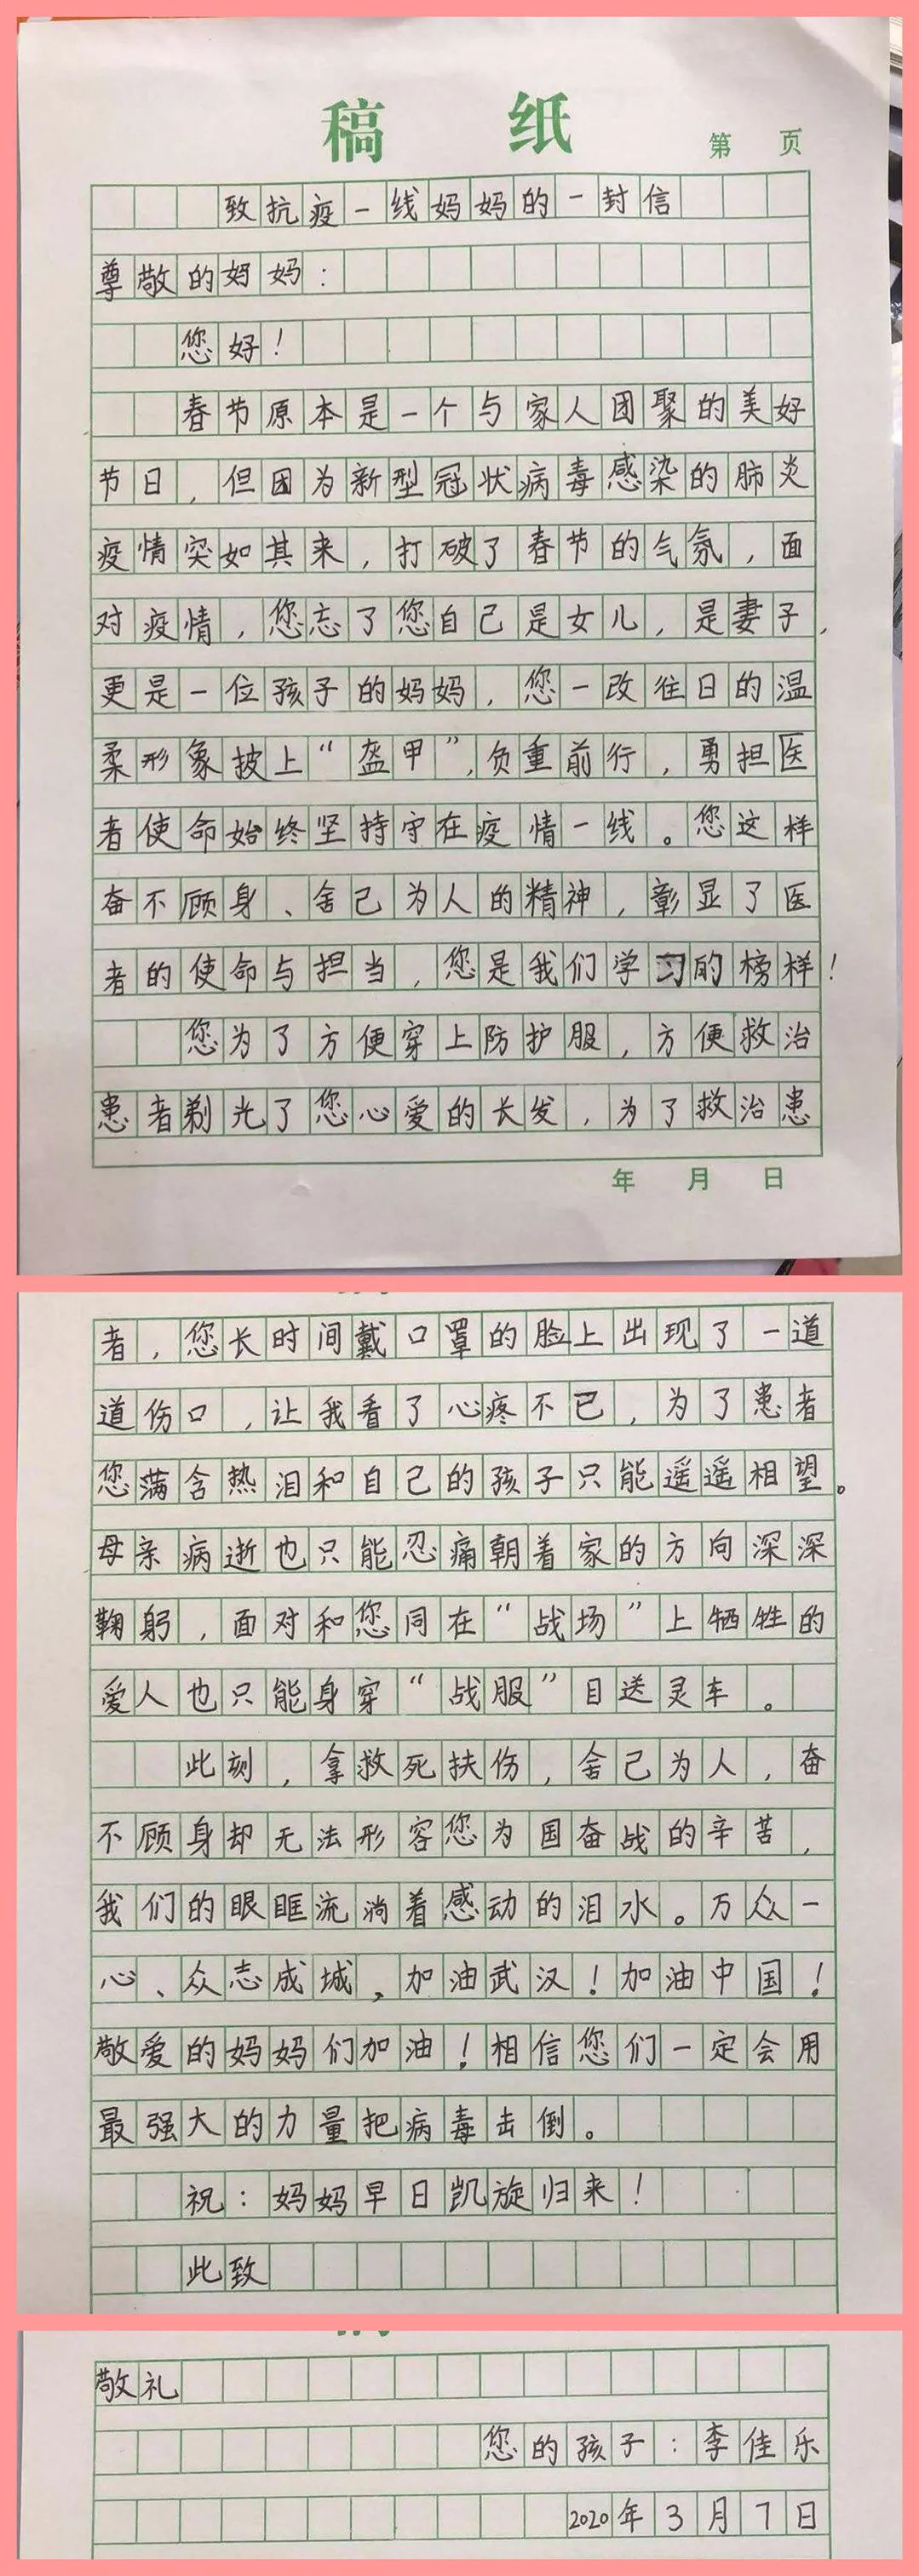 稿 纸
第 页
致抗疫一线妈妈的一封信
尊敬的妈妈:
您好!
春节原本是一个与家人团聚的美好
节日,但因为新型冠状病毒感染的肺炎
疫情突如其来,打破了春节的气氛,面
对疫情,您忘了您自己是女儿,是妻子,
更是一位孩子的妈妈,您一改往日的温
柔形象披上“盔甲”,负重前行,勇担医
者使命始终坚持守在疫情一线。您这样
奋不顾身、舍己为人的精神,彰显了医
者的使命与担当,您是我们学习的榜样!
您为了方便穿上防护服,方便救治
患者剃光了您心爱的长发,为了救治患
年 月 日
者,您长时间戴口罩的脸上出现了一道
道伤口,让我看了心疼不已,为了患者
您满含热泪和自己的孩子只能遥遥相望。
母亲病逝也只能忍痛朝着家的方向深深
鞠躬,面对和您同在“战场”上牺牲的
爱人也只能身穿“战服”目送灵车。
此刻,拿救死扶伤,舍己为人,奋
不顾身却无法形容您为国奋战的辛苦,
我们的眼眶流淌着感动的泪水。万众一
心、众志成城,加油武汉!加油中国!
敬爱的妈妈们加油!相信您们一定会用
最强大的力量把病毒击倒。
祝:妈妈早日凯旋归来!
此致
敬礼
您的孩子:李佳乐
2020年3月7日